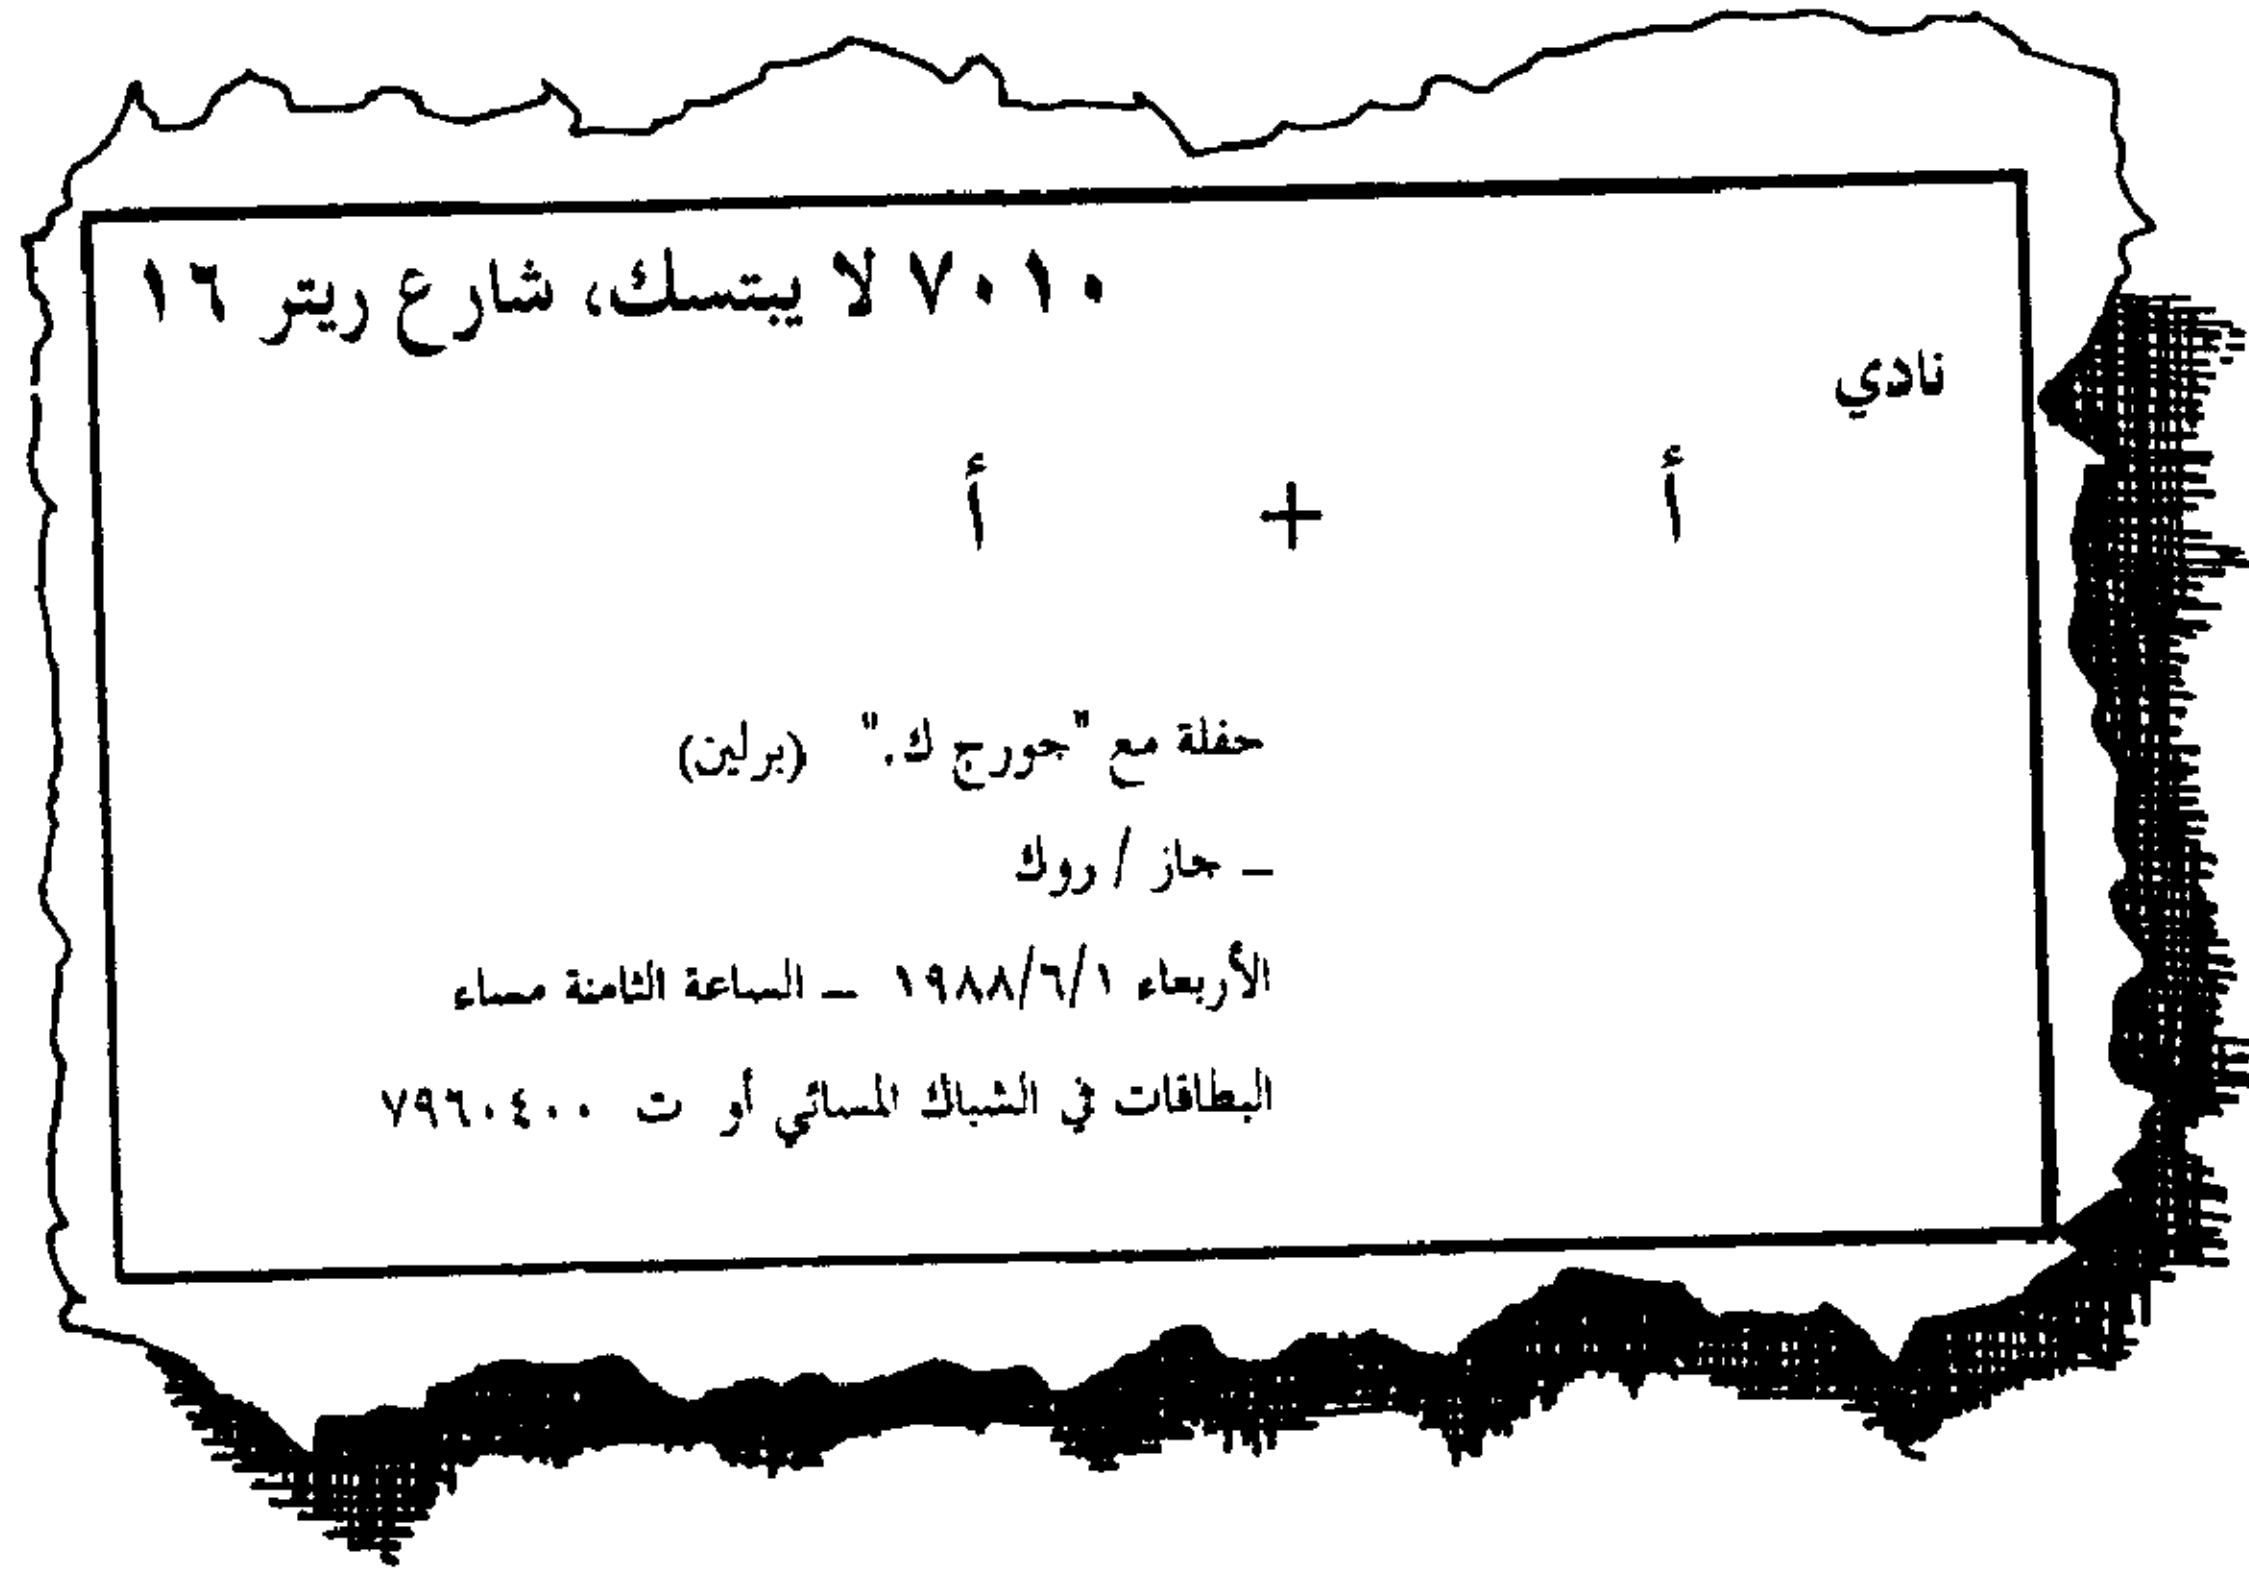 ٧٠١٠ لا يبتسك، شارع ريتر ١٦
نادي
أ + أ
حفلة مع "جورج ك." (برلين)
– جاز / روك
الأربعاء ١٩٨٨/٦/١ – الساعة الثامنة مساء
البطاقات في الشباك المسائي أو ت ٧٩٦٠٤٠٠